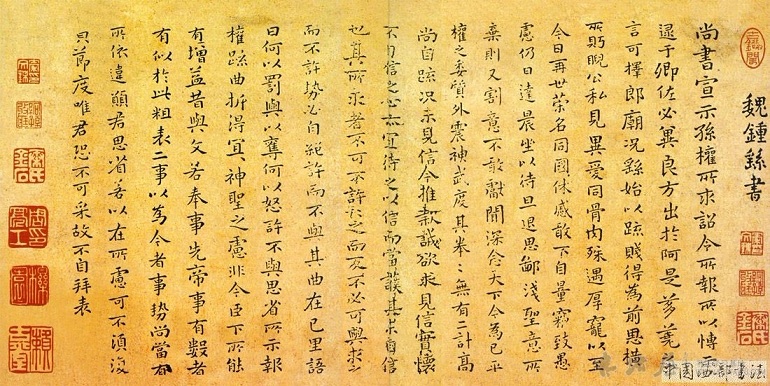 魏鍾繇書
尚書宣示孫權所求詔令所報所以博示
逮于卿佐必冀良方出於阿是芻蕘
言可擇郎廟況繇始以疏賤得為前恩橫
所眄睨公私見異愛同骨肉殊遇厚寵以至
今日再世榮名同國休慼敢不自量竊致愚
慮仍日達晨坐以待旦退思鄙淺聖意所
棄則又割意不敢獻聞深念天下今為已平
權之委質外震神武度其拳〻無有二計高
尚自疏況未見信今推款誠欲求見信實懷
不自信之心亦宜待之以信而當護其未自信
也其所求者不可不許〻之而反不必可與求之
而不許勢必自絕許而不與其曲在己里語
曰何以罰與以奪何以怒許不與思省所示報
權疏曲折得宜〻神聖之慮非今臣下所能
有增益昔與文若奉事先帝事有數者
有似於此粗表二事以為今者事勢尚當有
所依違願君思省若以在所慮可不須復
節度唯君恐不可采故不自拜表
中国西部书法